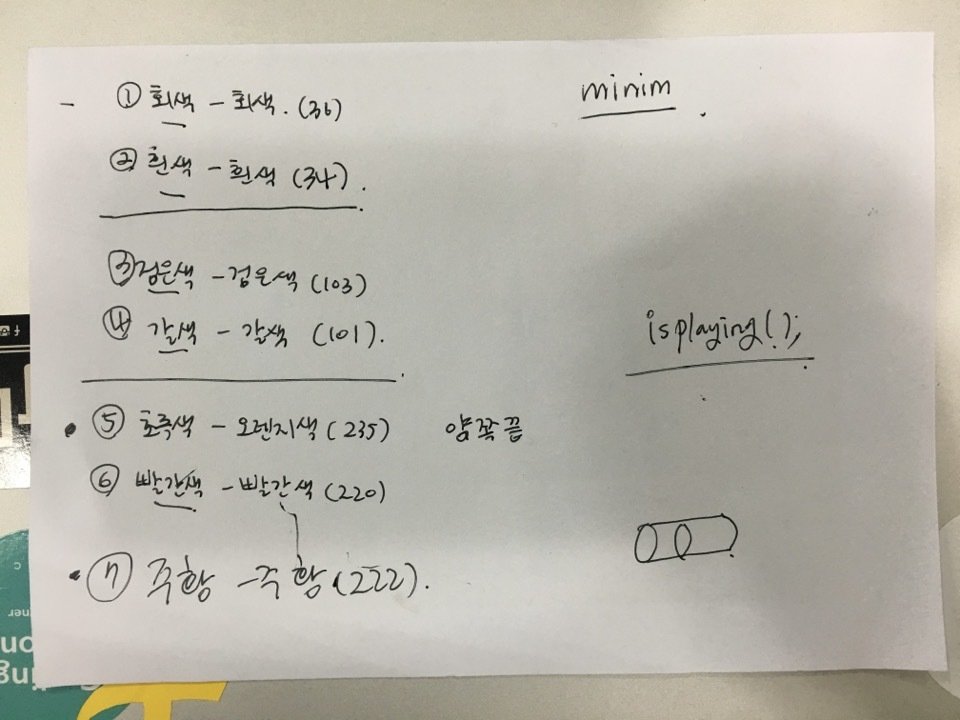 ① 회색 - 회색. (36)
② 흰색 - 흰색 (34).
③ 검은색 - 검은색 (103)
④ 갈색 - 갈색 (101).
⑤ 초록색 - 오렌지색 (235) 양쪽끝
⑥ 빨간색 - 빨간색 (220)
⑦ 주황 - 주황 (222).
minim
isplaying();